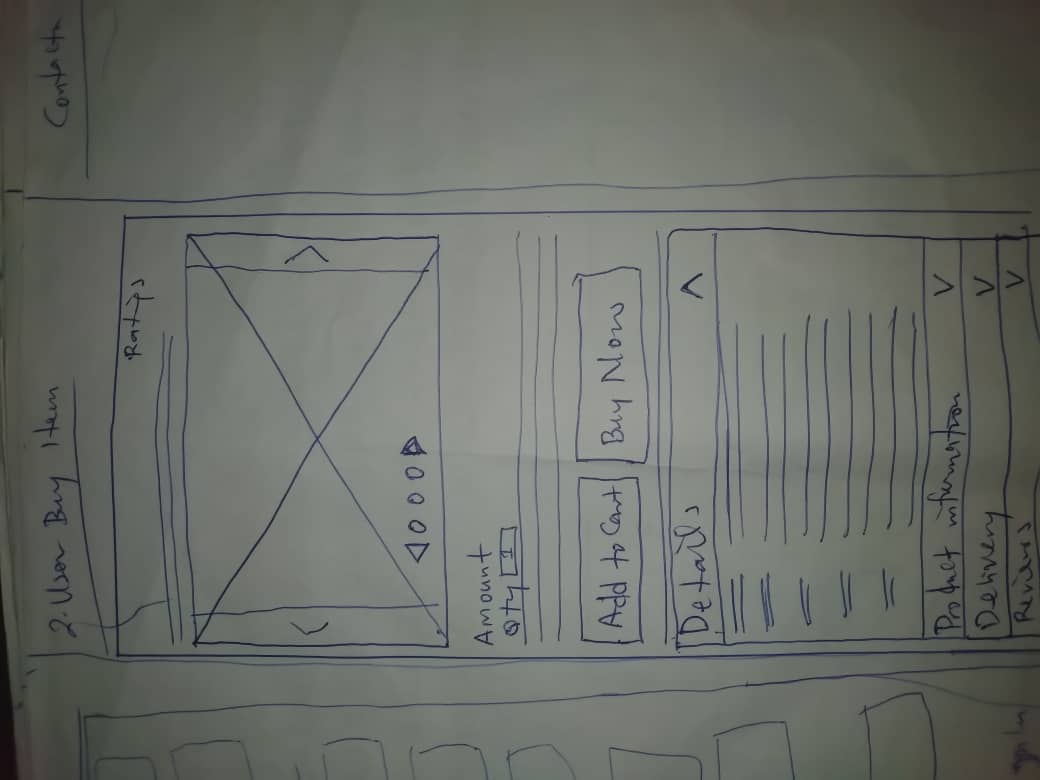 2. User Buy Item
Ratings
Amount
Qty 1
Add to Cart
Buy Now
Details
Product information
Delivery
Reviews